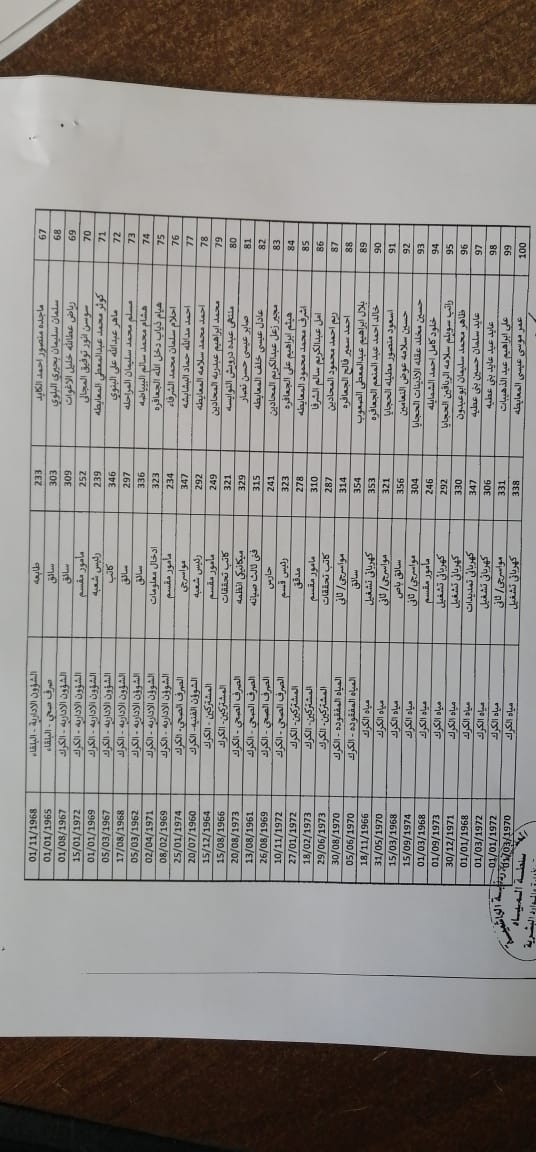 67 ماجده منصور احمد الكايد 233 طابعه الشؤون الادارية - البلقاء 01/11/1968
68 سلمان سليمان بحيري البلوي 303 سائق صرف صحي - البلقاء 01/01/1965
69 رياض عطالله خليل الاغوات 309 سائق الشؤون الاداريه - الكرك 01/08/1967
70 سوسن انور توفيق المجالي 252 مأمور مقسم الشؤون الاداريه - الكرك 15/01/1972
71 كوثر محمد عبدالمعطي المعايطه 239 رئيس شعبة الشؤون الاداريه - الكرك 01/01/1969
72 ماهر عبدالله علي البلوي 346 كاتب الشؤون الاداريه - الكرك 05/03/1967
73 مسلم محمد سليمان المراحله 297 سائق الشؤون الاداريه - الكرك 17/08/1968
74 هشام محمد سالم البيايضه 336 سائق الشؤون الاداريه - الكرك 05/03/1962
75 هيام ذياب دخل الله الجعافره 323 ادخال معلومات الشؤون الاداريه - الكرك 02/04/1971
76 احلام سلمان محمد الشرفاء 234 مأمور مقسم الشؤون الاداريه - الكرك 08/02/1969
77 احمد مدالله حماد البشابشه 347 مواسرجي الصرف الصحي - الكرك 25/01/1974
78 احمد محمد سلامه المعايطه 292 رئيس شعبة الشؤون الفنيه - الكرك 20/07/1960
79 محمد ابراهيم عبدربه المحادين 249 مأمور مقسم المشتركين - الكرك 15/12/1964
80 منتهى عبده درويش النوايسه 321 كاتب تحققات المشتركين - الكرك 15/08/1966
81 صابر عيسى حسن نصار 329 ميكانيكي انظمه الصرف الصحي - الكرك 20/08/1973
82 عادل عيسى خلف المعايطه 315 فني ثالث صيانه الصرف الصحي - الكرك 13/08/1961
83 مجير زعل عبدالكريم المحادين 241 حارس الصرف الصحي - الكرك 26/08/1969
84 هيثم ابراهيم علي الجعافره 323 رئيس قسم الصرف الصحي - الكرك 10/11/1972
85 اشرف محمد محمود المعايطه 278 مدقق المشتركين - الكرك 27/01/1972
86 امل عبدالكريم سالم الشرفا 310 مأمور مقسم المشتركين - الكرك 18/02/1973
87 ريم احمد محمود المحادين 287 كاتب تحققات المشتركين - الكرك 29/06/1973
88 احمد سمير فالح الجعافره 314 مواسرجي/ ثاني المياه المفقوده - الكرك 30/08/1970
89 بلال ابراهيم عبدالمعطي الصعوب 354 سائق المياه المفقوده - الكرك 05/06/1970
90 خالد احمد عبد المنعم الجعافره 353 كهربائي تشغيل مياه الكرك 18/11/1966
91 اسعود منصور معليله الحجايا 321 مواسرجي/ ثاني مياه الكرك 31/05/1970
92 حسين سلامه عوض النعامين 356 سائق باص مياه الكرك 15/03/1968
93 حسين مخلد عقله الاذينات الحجايا 304 مواسرجي/ ثاني مياه الكرك 15/09/1974
94 خلود كامل احمد الشمايله 246 مأمور مقسم مياه الكرك 01/03/1968
95 راتب سويلم سلامه الزرافين الحجايا 292 كهربائي تشغيل مياه الكرك 01/09/1973
96 طاهر محمد سليمان ابوعبدون 330 كهربائي تشغيل مياه الكرك 30/12/1971
97 عايد سلمان حسين بني عطيه 347 كهربائي تمديدات مياه الكرك 01/01/1968
98 عايد عيد عايد بني عطيه 306 كهربائي تشغيل مياه الكرك 01/03/1972
99 علي ابراهيم عيد الذنيبات 331 مواسرجي/ ثاني مياه الكرك 01/01/1972
100 عمر موسى عيسى المعايطه 338 كهربائي تشغيل مياه الكرك 01/03/1970
سلطة المياه